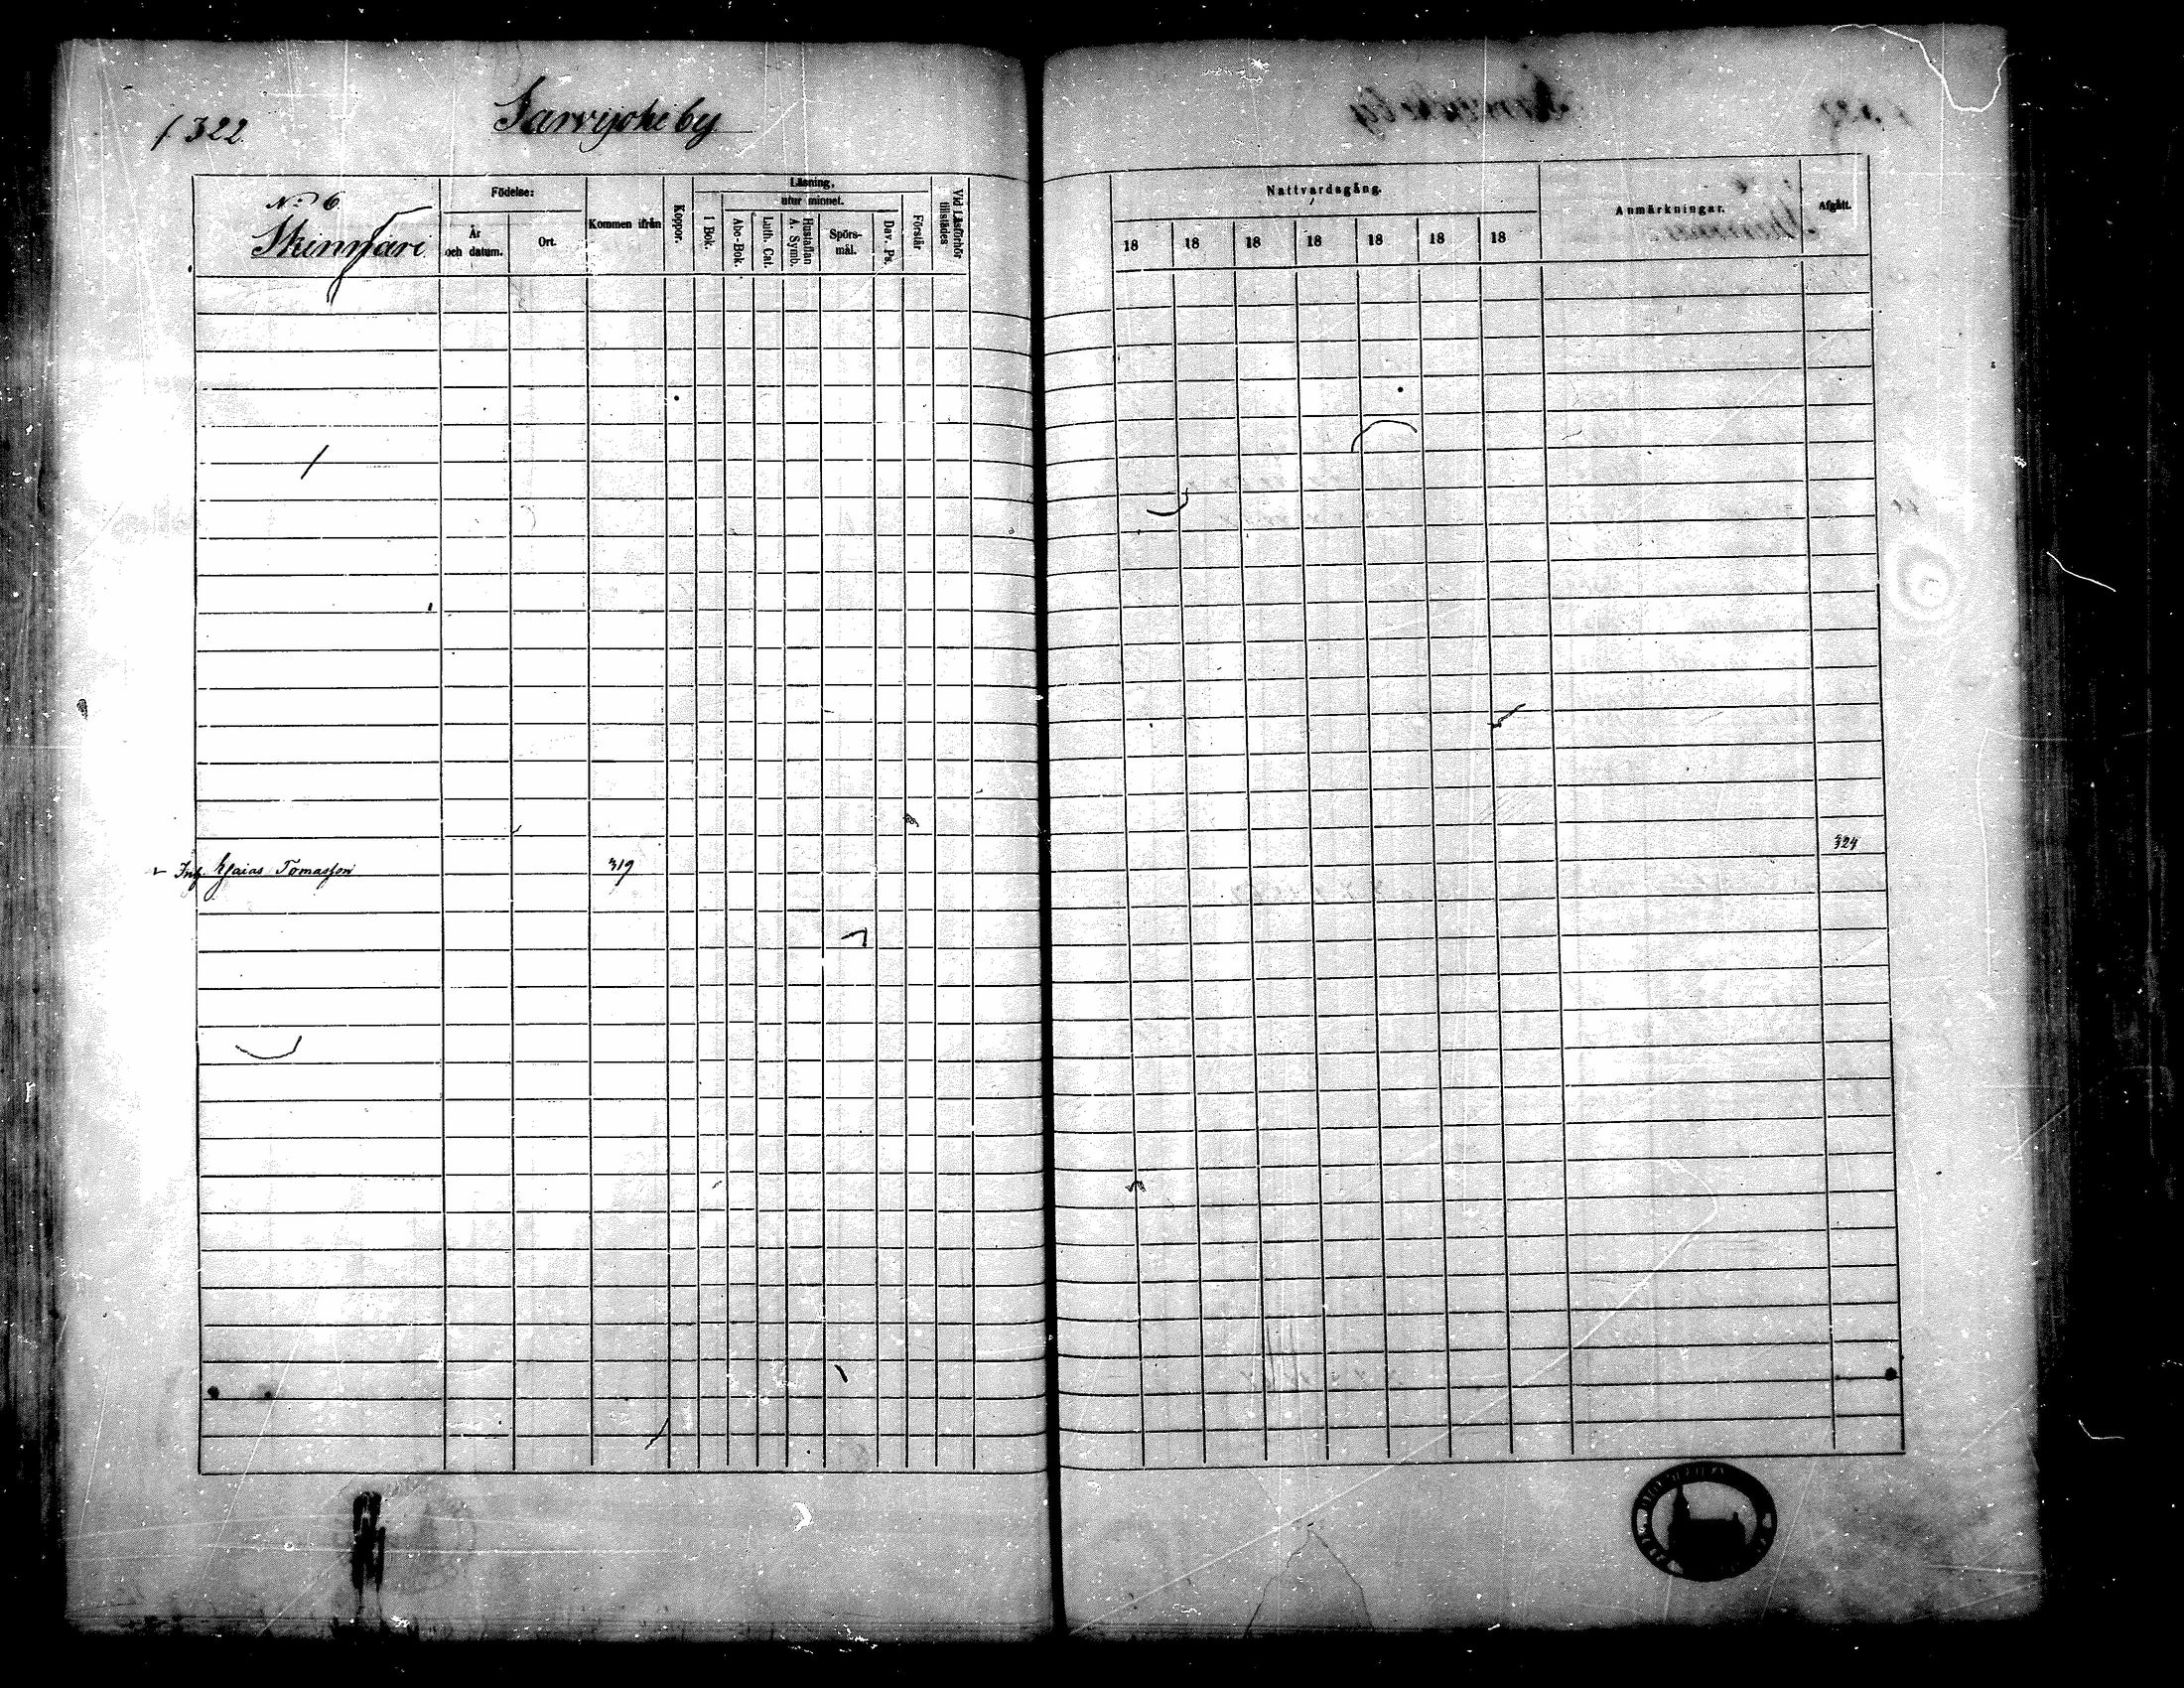 322.
Sarvijoki by
No 6.
Skinnari.
Födelse:
År
och datum.
Ort.
Kommen ifrån
Koppor.
Läsning,
utur minnet.
I Bok.
Abc-Bok.
Luth. Cat.
Hustaflan
A. Symb.
Spörs-
mål.
Dav. Ps.
Förstår
Vid Läsförhör
tillstädes
Nattvardsgång.
18 18 18 18 18 18 18
Anmärkningar.
Afgått.
Inh. Esaias Tomasson 319 324